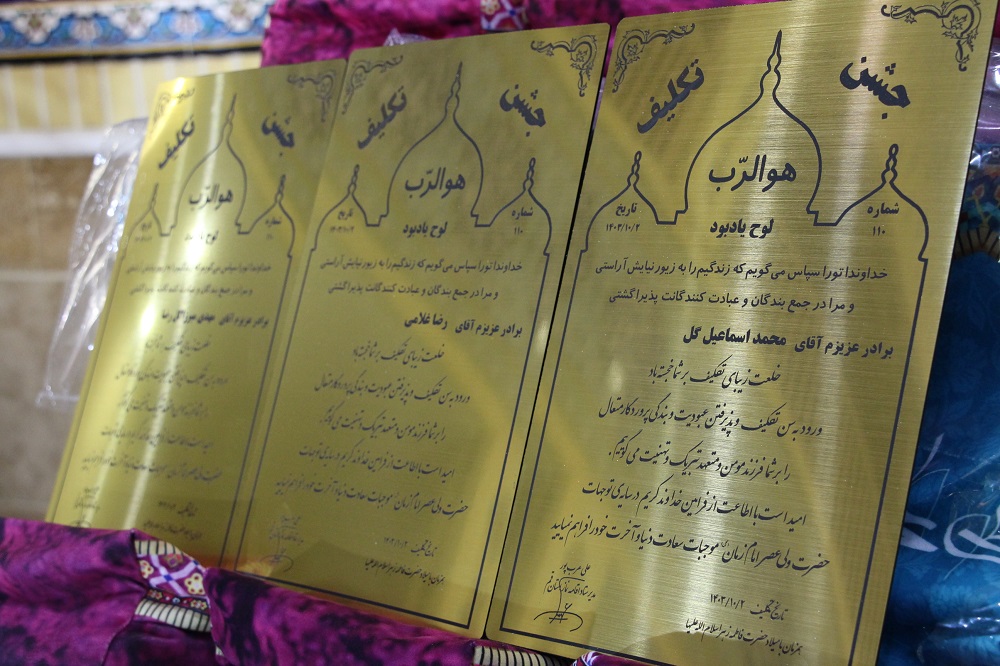 جشن تکلیف
هوالرّب
شماره
۱۱۰
تاریخ
۱۴۰۳/۱۰/۲
لوح یادبود
خداوندا تورا سپاس می‌گویم که زندگیم را به زیور نیایش آراستی
و مرا در جمع بندگان و عبادت کنندگانت پذیرا گشتی
برادر عزیزم آقای محمد اسماعیل گل
خلعت زیبای تکلیف بر شما خجسته باد
ورود به سن تکلیف و پذیرفتن عبودیت و بندگی پروردگار متعال
را بر شما فرزند مومن و متعهد تبریک و تهنیت می گوییم.
امید است با اطاعت از فرامین خداوند کریم در سایه ی توجهات
حضرت ولی عصر امام زمان (عج) موجبات سعادت دنیا و آخرت خود را فراهم نمایید
علی عرب پور
مدیر ستاد اقامه نماز استان قم
تاریخ تکلیف ۱۴۰۳/۱۰/۲
همزمان با میلاد حضرت فاطمه زهرا سلام الله علیها
جشن تکلیف
هوالرّب
شماره
۱۱۰
تاریخ
۱۴۰۳/۱۰/۲
لوح یادبود
خداوندا تورا سپاس می‌گویم که زندگیم را به زیور نیایش آراستی
و مرا در جمع بندگان و عبادت کنندگانت پذیرا گشتی
برادر عزیزم آقای رضا غلامی
خلعت زیبای تکلیف بر شما خجسته باد
ورود به سن تکلیف و پذیرفتن عبودیت و بندگی پروردگار متعال
را بر شما فرزند مومن و متعهد تبریک و تهنیت می گوییم.
امید است با اطاعت از فرامین خداوند کریم در سایه ی توجهات
حضرت ولی عصر امام زمان (عج) موجبات سعادت دنیا و آخرت خود را فراهم نمایید
تاریخ تکلیف ۱۴۰۳/۱۰/۲
همزمان با میلاد حضرت فاطمه زهرا سلام الله علیها
جشن تکلیف
هوالرّب
شماره
۱۱۰
تاریخ
لوح یادبود
خداوندا تورا سپاس می‌گویم که زندگیم را به زیور نیایش آراستی
و مرا در جمع بندگان و عبادت کنندگانت پذیرا گشتی
برادر عزیزم آقای مهدی
خلعت زیبای تکلیف بر شما